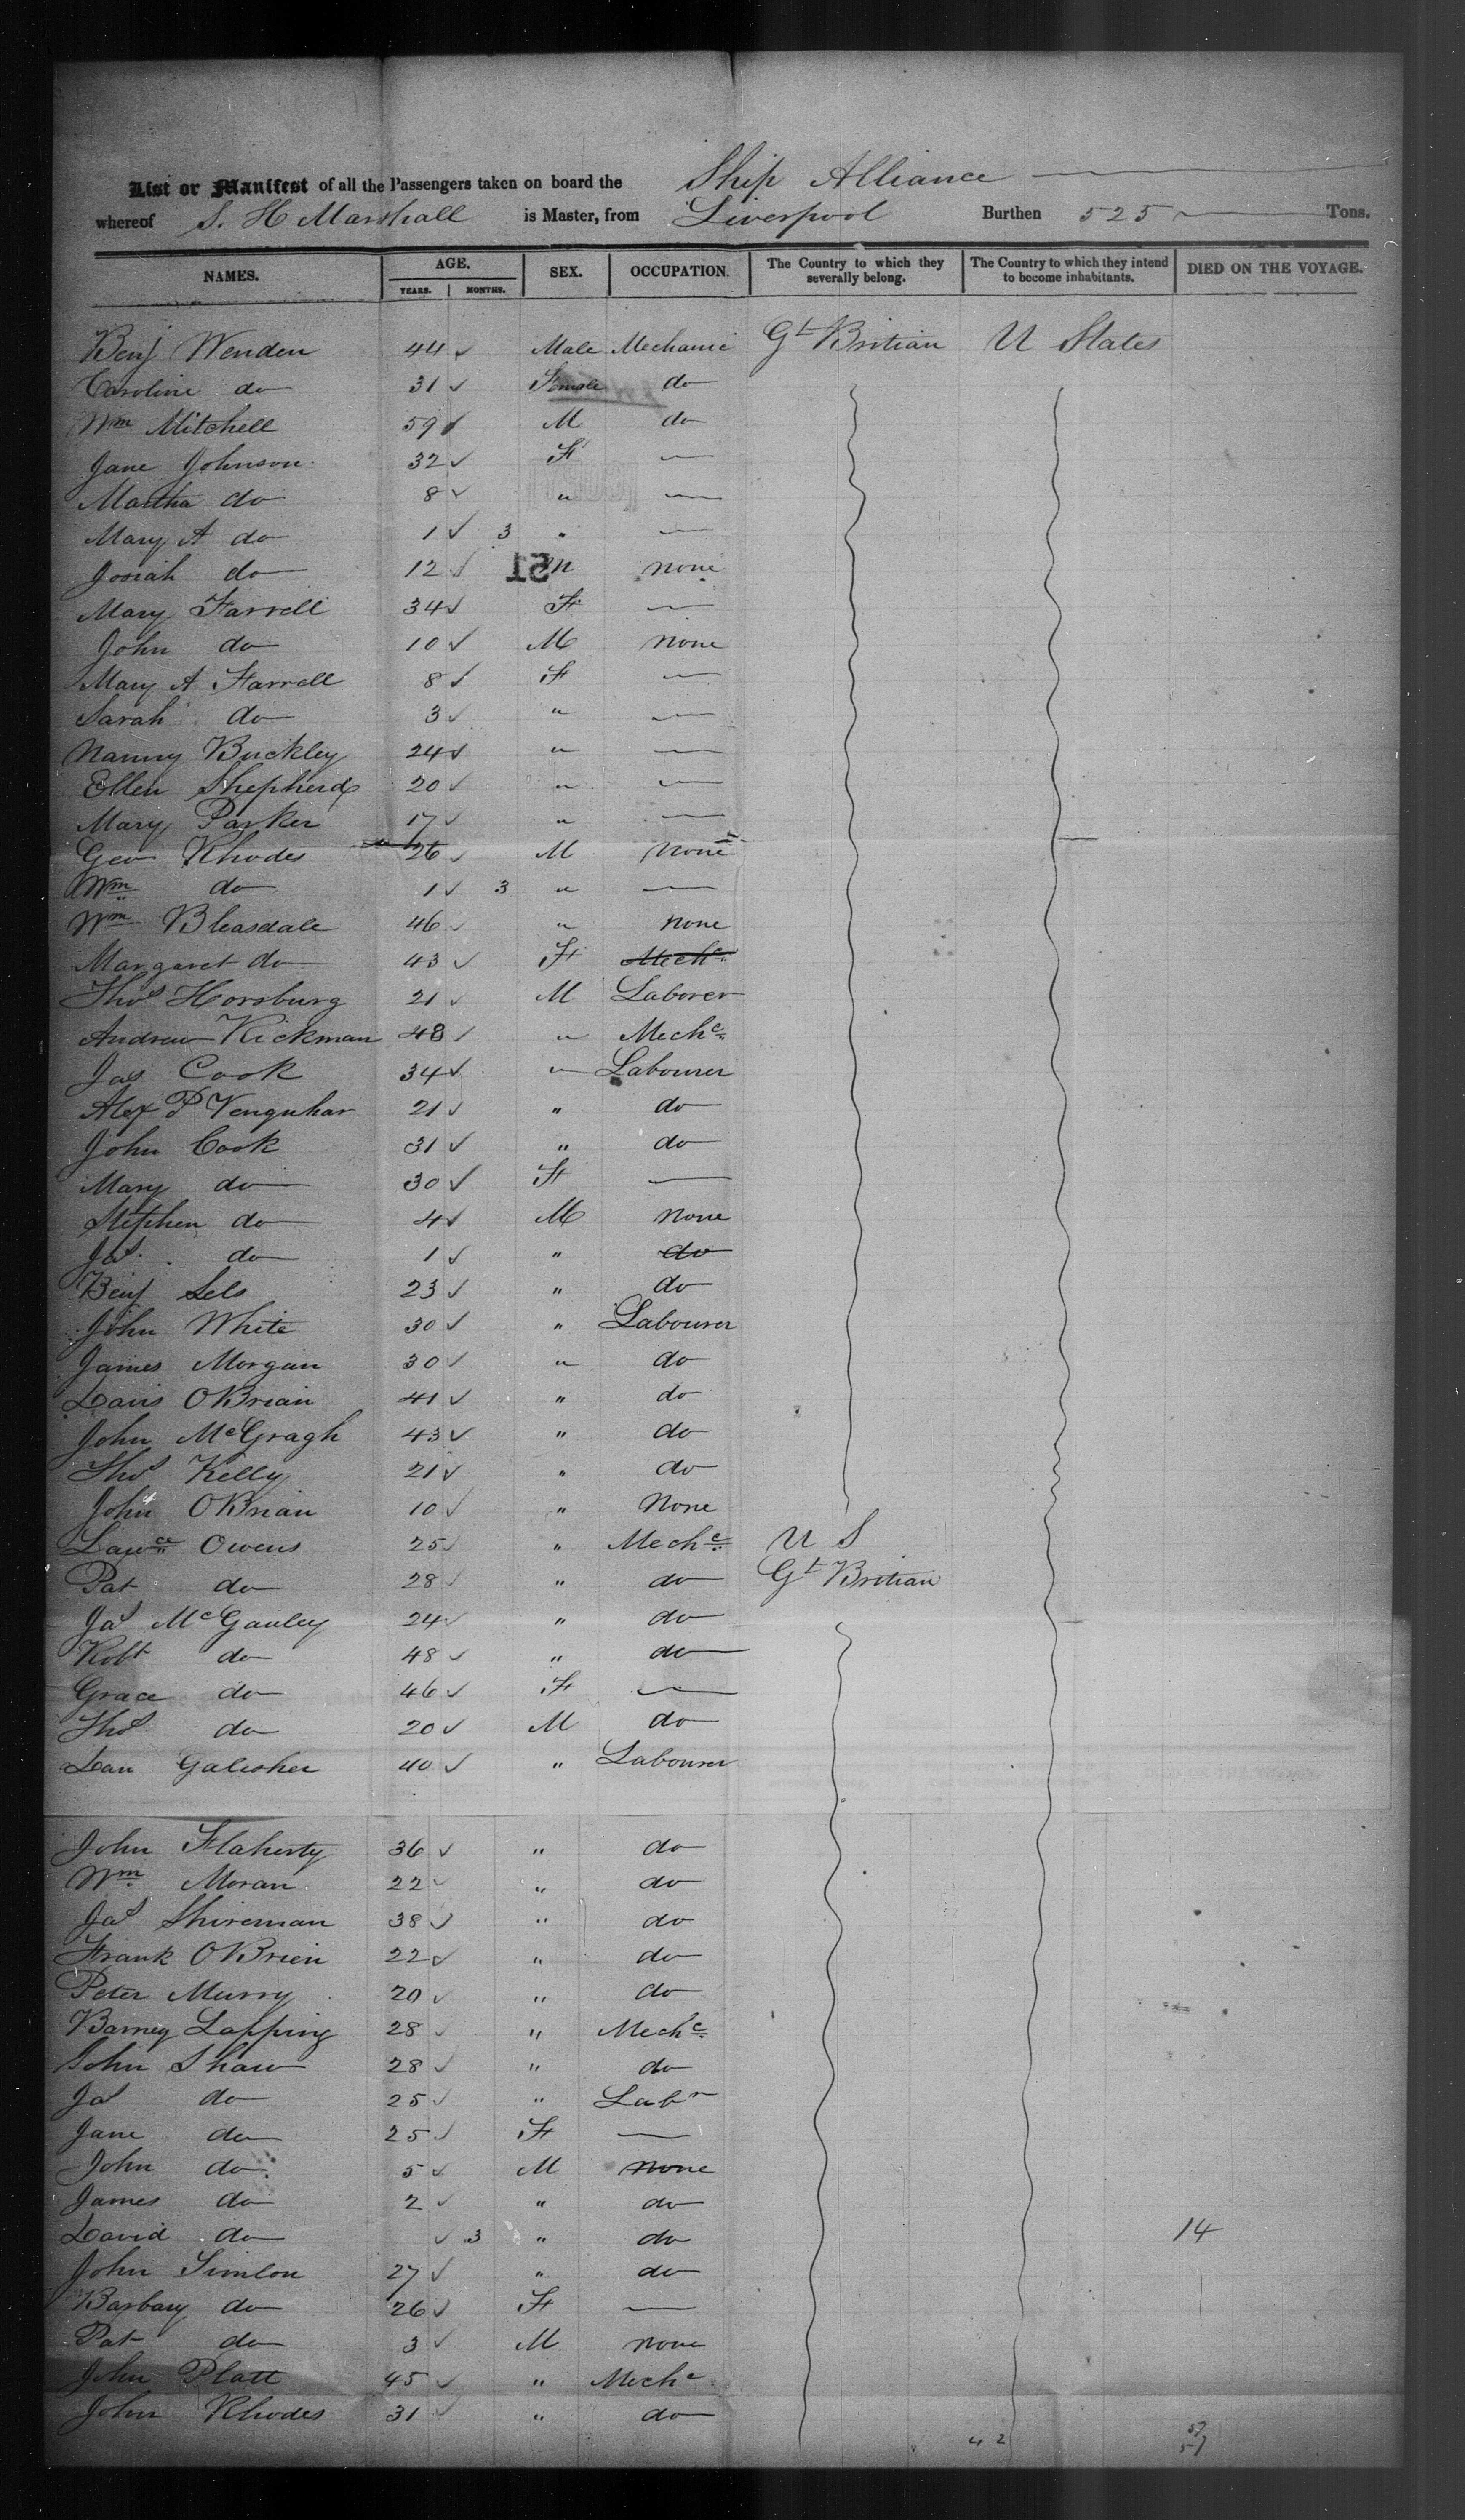 List or Manifest of all the Passengers taken on board the Ship Alliance
whereof S. H Marshall is Master, from Liverpool Burthen 525 Tons.
NAMES. AGE. SEX. OCCUPATION. The Country to which they severally belong. The Country to which they intend to become inhabitants. DIED ON THE VOYAGE.
YEARS. MONTHS.
Benj Wenden 44 Male Mechanic Gt Britian U States
Caroline do 31 Female do
Wm Mitchell 59 M do
Jane Johnson 32 F —
Martha do 8 " —
Mary A do 1 3 " —
Josiah do 12 M none
51
Mary Farrell 34 F —
John do 10 M none
Mary A Farrell 8 F —
Sarah do 3 " —
Nanny Buckley 24 " —
Ellen Shepherd 20 " —
Mary Parker 17 " —
Geo Rhodes 26 M none
Wm do 1 3 " —
Wm Bleasdale 46 " none
Margaret do 43 F Mechc
Thos Horsburg 21 M Laborer
Andrew Kickman 48 " Mechc
Jas Cook 34 " Labourer
Alex P Venguhar 21 " do
John Cook 31 " do
Mary do 30 F —
Stephen do 4 M none
Jas do 1 " do
Benj Sels 23 " do
John White 30 " Labourer
James Morgan 30 " do
Davis OBrian 41 " do
John McGragh 43 " do
Thos Kelly 21 " do
John OBrian 10 " None
Lawce Owens 25 " Mechc U S
Pat do 28 " do Gt Britian
Jas McGauley 24 " do
Robt do 48 " do
Grace do 46 F —
Thos do 20 M do
Dan Galisher 40 " Labourer
John Flaherty 36 " do
Wm Moran 22 " do
Jas Shireman 38 " do
Frank OBrien 22 " do
Peter Murry 20 " do
Barney Lapping 28 " Mechc
John Shaw 28 " do
Jas do 25 " Labr
Jane do 25 F —
John do 5 M none
James do 2 " do
David do 3 " do 14
John Simlon 27 " do
Barbary do 26 F —
Pat do 3 M none
John Platt 45 " Mechc
John Rhodes 31 " do
42 57
57